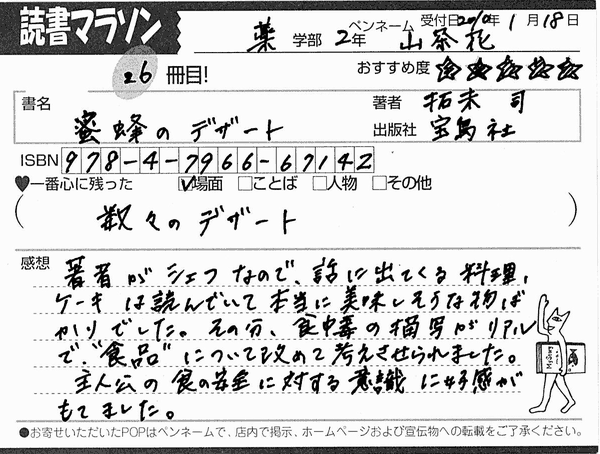 読書マラソン
受付日2010年1月18日
薬 学部 2年 ペンネーム 山茶花
26 冊目!
おすすめ度 ☆☆☆☆☆
書名 蜜蜂のデザート
著者 拓未 司
出版社 宝島社
ISBN 978-4-7966-67142
♥一番心に残った ☑場面 □ことば □人物 □その他
(数々のデザート)
感想 著者がシェフなので、話に出てくる料理、
ケーキは読んでいて本当に美味しそうな物ば
かりでした。その分、食中毒の描写がリアル
で、"食品"について改めて考えさせられました。
主人公の食の安全に対する意識に好感が
もてました。
●お寄せいただいたPOPはペンネームで、店内で掲示、ホームページおよび宣伝物への転載をご了承ください。